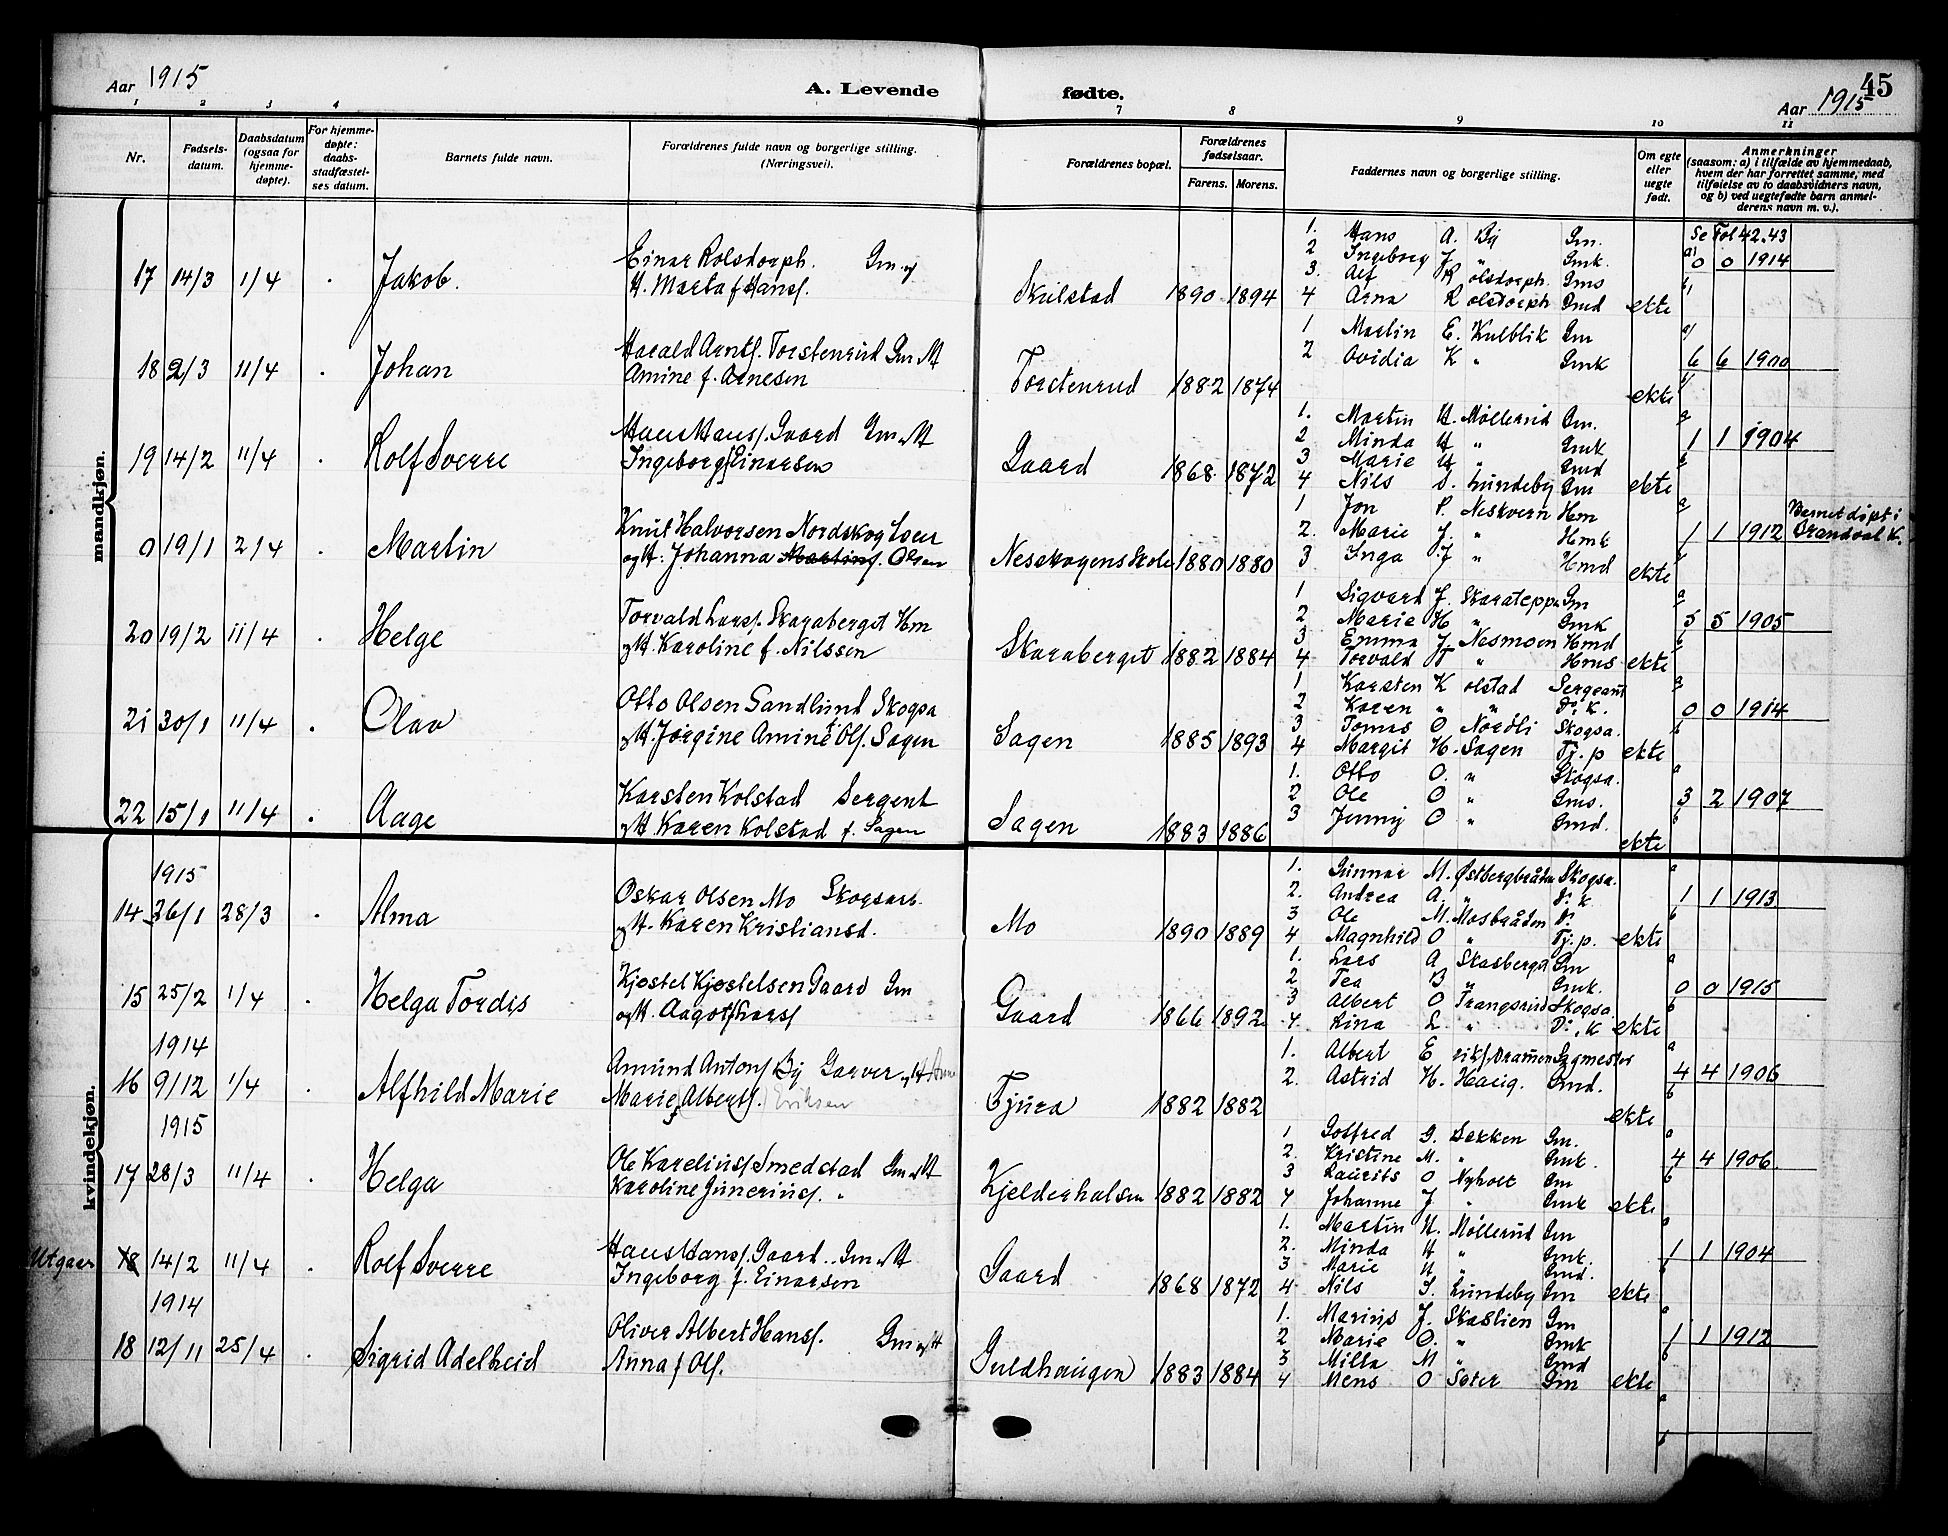 Aar 1915
A. Levende
fødte.
45
Aar 1915
1 2 3 4 7 8 9 10 11
Nr.
Fødsels-
datum.
Daabsdatum
(ogsaa for
hjemme-
døpte).
For hjemme-
døpte:
daabs-
stadfæstel-
ses datum.
Barnets fulde navn.
Forældrenes fulde navn og borgerlige stilling.
(Næringsvei).
Forældrenes bopæl.
Forældrenes
fødselsaar.
Farens. Morens.
Faddernes navn og borgerlige stilling.
Om egte
eller
uegte
født.
Anmerkninger
(saasom: a) i tilfælde av hjemmedaab,
hvem der har forrettet samme, med
tilføielse av to daabsvidners navn,
og b) ved uegtefødte barn anmel-
derens navn m. v.).
mandkjøn.
17 14/3 1/4 Jakob.
Einar Rolsdorph. Gm og
H. Marta f Hans.
Skulstad 1890 1894
1. Hans A. By Gm.
2 Ingeborg J. " Gmk.
3. Alf Rolsdorph. Gms
4 Arna Rolsdorph Gmd
ekte
Se Fol 42.43
a) 0 0 1914
18 2/3 11/4 Johan
Harald Arnts. Torstenrud Gm H
Amine f. Arnesen
Torstenrud 1882 1874
1 Martin E. Kulblik Gm
2 Ovidia K " Gmk
ekte
6 6 1900
19 14/2 11/4 Rolf Sverre
Hans Hans. Gaard Gm H
Ingeborg f Einarsen
Gaard 1868 1872
1. Martin H. Møllerud Gm.
2 Minda H " Gmk
3 Marie H " Gmd
4 Nils S. Lundeby Gm
ekte
1 1 1904
0 19/1 2/4 Martin
Knut Halvorsen Nordskog
og H. Johanna Martins. Olsen
Nesskogens Skole 1880 1880
1 Jon P. Neskvern Hm
2. Marie J. " Hmk
3 Inga J " Hmd
ekte
1 1 1912
Barnet døpt i
Brandval K.
20 19/2 11/4 Helge
Torvald Lars. Skaraberget Hm
og H. Karoline f. Nilssen
Skaraberget 1882 1884
1 Sigvard J. Gm
2 Marie H " Gmk
3 Emma J Nesmoen Hmd
4 Torvald T " Hms
ekte
5 5 1905
21 30/1 11/4 Olav
Otto Olsen Sandlund Skogsa
og H. Jørgine Amine f Ols. Sagen
Sagen 1885 1893
1 Karsten Kolstad Sergeant
2 Karen " " Do. K.
3 Tomas O Nordli Skogsa.
4 Margit H. Sagen Tj. p
ekte
0 0 1914
22 15/1 11/4 Aage
Karsten Kolstad Sergent
og H Karen Kolstad f. Sagen
Sagen 1883 1886
1. Otto O. " Skogsa.
2 Ole O " Gms.
3 Jenny O " Gmd.
ekte
3 2 1907
kvindekjøn.
1915
14 26/1 28/3 Alma
Oskar Olsen Mo Skogsarb.
og H. Karen Kristiansd.
Mo 1890 1889
1. Gunnar M. Østbergbråten Skogsa.
2. Andrea A. " Do. K
3 Ole M. Mosbråden Do
4 Magnhild O " Tj. p.
ekte
1 1 1913
15 25/2 1/4 Helga Tordis
Kjøstel Kjøstelsen Gaard Gm
og H. Aagot f Lars
Gaard 1866 1892
1. Lars A Skasberget Gm
2 Tea B " Gmk.
3 Albert O Trangsrud Skogsa
4 Lina L. " Do. K
ekte
0 0 1915
1914
16 9/12 1/4 Alfhild Marie
Amund Antons By Garver og H Anne
Marie f Alberts. Eriksen
Tjura 1882 1882
1. Albert Eriks. Dramen
2. Astrid H. Haug. Gmd.
ekte
4 4 1906
1915
17 28/3 11/4 Helga
Ole Karelius Smedstad Gm og H
Karoline Junerius. "
Kjelderhalsen 1882 1882
1 Gotfred G. Bekken Gm.
2. Kristine M. " Gmk.
3 Laurits O Nyholt Gm
4 Johanne J " Gmk
ekte
4 4 1906
Utgaar 18 14/2 11/4 Rolf Sverre
Hans Hans. Gaard. Gm H
Ingeborg f. Einarsen
Gaard 1868 1872
1. Martin H. Møllerud Gm
2. Minda H " Gmk.
3 Marie H " Gmd.
4 Nils S. Lundeby Gm
ekte
1 1 1904
1914
18 12/11 25/4 Sigrid Adelheid
Oliver Albert Hans. Gm og H
Anna f Ols.
Guldhaugen 1883 1884
1. Marius J. Skaslien Gm
2 Marie O. " Gmk
3 Milla M " Gmd
4 Mens O Sæter Gm
ekte
1 1 1912